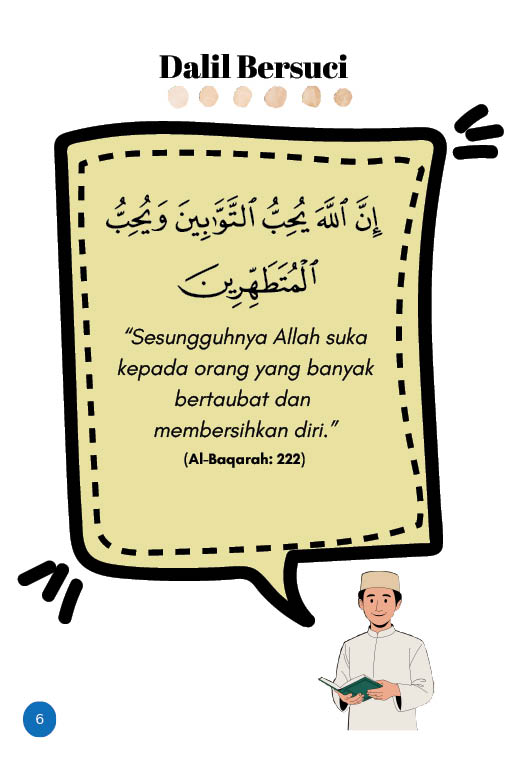 Dalil Bersuci
إِنَّ ٱللَّهَ يُحِبُّ ٱلتَّوَّٰبِينَ وَيُحِبُّ
ٱلْمُتَطَهِّرِينَ
“Sesungguhnya Allah suka
kepada orang yang banyak
bertaubat dan
membersihkan diri.”
(Al-Baqarah: 222)
6